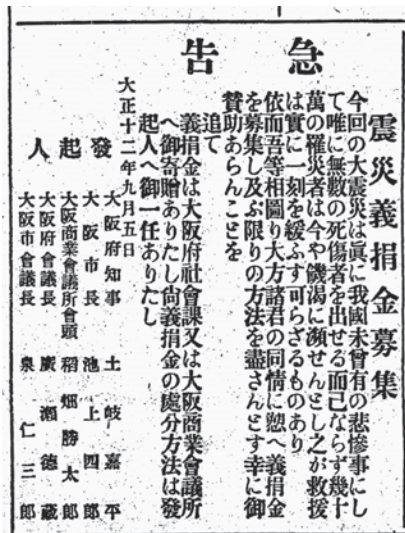 急告
震災義捐金募集
今回の大震災は眞に我國未曾有の悲慘事にし
て唯に無數の死傷者を出せる而已ならず幾十
萬の罹災者は今や饑渴に瀕せんとし之が救援
は實に一刻を緩ふす可らざるものあり
依而吾等相圖り大方諸君の同情に愬へ義捐金
を募集し及ぶ限りの方法を盡さんとす幸に御
賛助あらんことを
追て
義捐金は大阪府社會課又は大阪商業會議所
へ御寄贈ありたし尙義捐金の處分方法は發
起人へ御一任ありたし
大正十二年九月五日
發起人
大阪府知事 土岐嘉平
大阪市長 池上四郎
大阪商業會議所會頭 稻畑勝太郎
大阪府會議長 廣瀬德藏
大阪市會議長 泉仁三郎